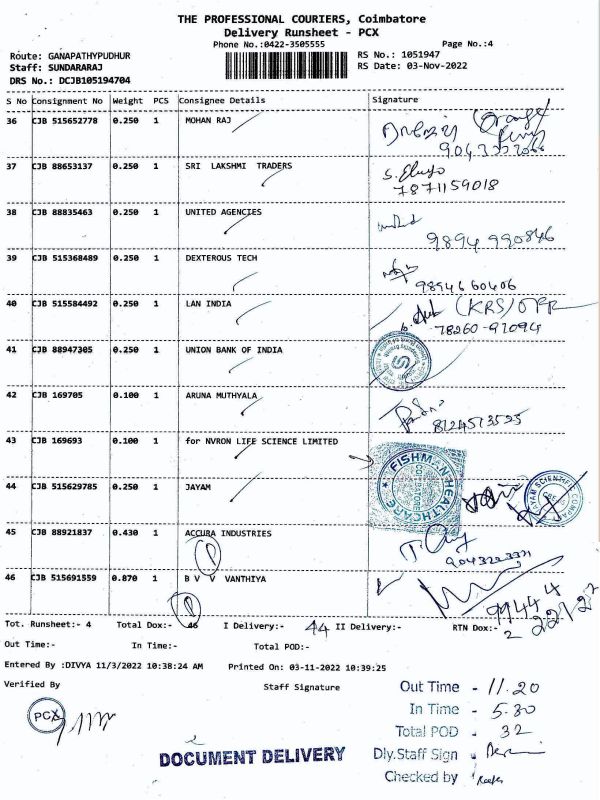 THE PROFESSIONAL COURIERS, Coimbatore
Delivery Runsheet - PCX
Phone No.:0422-3505555
Page No.:4
Route: GANAPATHYPUDHUR
RS No.: 1051947
Staff: SUNDARARAJ
RS Date: 03-Nov-2022
DRS No.: DCJB105194704
S No Consignment No Weight PCS Consignee Details Signature
36 CJB 515652778 0.250 1 MOHAN RAJ
37 CJB 88653137 0.250 1 SRI LAKSHMI TRADERS
7871159018
38 CJB 88835463 0.250 1 UNITED AGENCIES
9894 990846
39 CJB 515368489 0.250 1 DEXTEROUS TECH
9894660406
40 CJB 515584492 0.250 1 LAN INDIA (KRS)
78260-97094
41 CJB 88947305 0.250 1 UNION BANK OF INDIA
42 CJB 169705 0.100 1 ARUNA MUTHYALA
8124513525
43 CJB 169693 0.100 1 for NVRON LIFE SCIENCE LIMITED
FISHMAN HEALTHCARE
COIMBATORE
44 CJB 515629785 0.250 1 JAYAM
45 CJB 88921837 0.430 1 ACCURA INDUSTRIES
P
46 CJB 515691559 0.870 1 B V V VANTHIYA
P
Tot. Runsheet:- 4 Total Dox:- 46 I Delivery:- 44 II Delivery:- RTN Dox:- 2
Out Time:- In Time:- Total POD:-
Entered By :DIVYA 11/3/2022 10:38:24 AM Printed On: 03-11-2022 10:39:25
Verified By Staff Signature
PCX
Out Time - 11.20
In Time - 5.30
Total POD - 32
Dly.Staff Sign -
Checked by
DOCUMENT DELIVERY